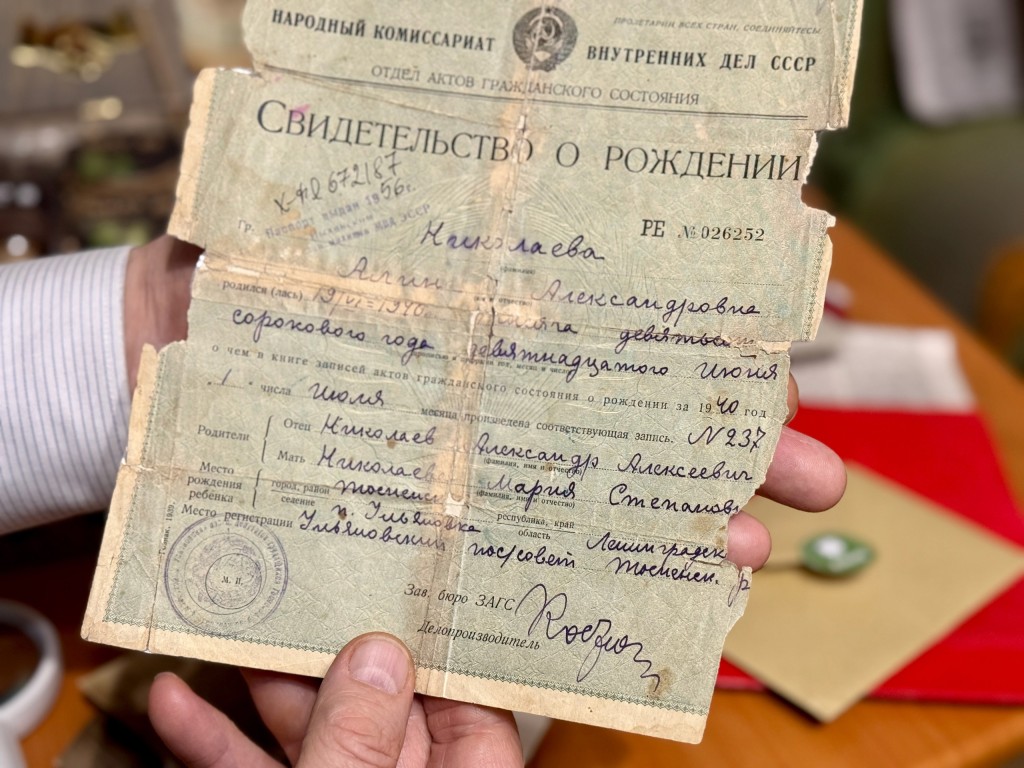 ПРОЛЕТАРИИ ВСЕХ СТРАН, СОЕДИНЯЙТЕСЬ
НАРОДНЫЙ КОМИССАРИАТ ВНУТРЕННИХ ДЕЛ СССР
ОТДЕЛ АКТОВ ГРАЖДАНСКОГО СОСТОЯНИЯ
СВИДЕТЕЛЬСТВО О РОЖДЕНИИ
672187
Паспорт выдан 1956г.
РЕ № 026252
Гр. Николаева
(фамилия)
Александровна
имя и отчество
родился (лась) 19/VI-1940
сорокового года девятнадцатого июня
о чем в книге записей актов гражданского состояния о рождении за 1940 год
1 числа июля месяца произведена соответствующая запись. N 237
Родители Отец Николаев Александр Алексеевич
(фамилия, имя и отчество)
Мать Николаева Мария Степановн
(фамилия, имя и отчество)
Место рождения ребенка город, район Тосненск
селение п. Ульяновка республика, край область Ленинградск
Место регистрации Ульяновский пос/совет Тосненск. р
М. П.
Зав. бюро ЗАГС
Делопроизводитель